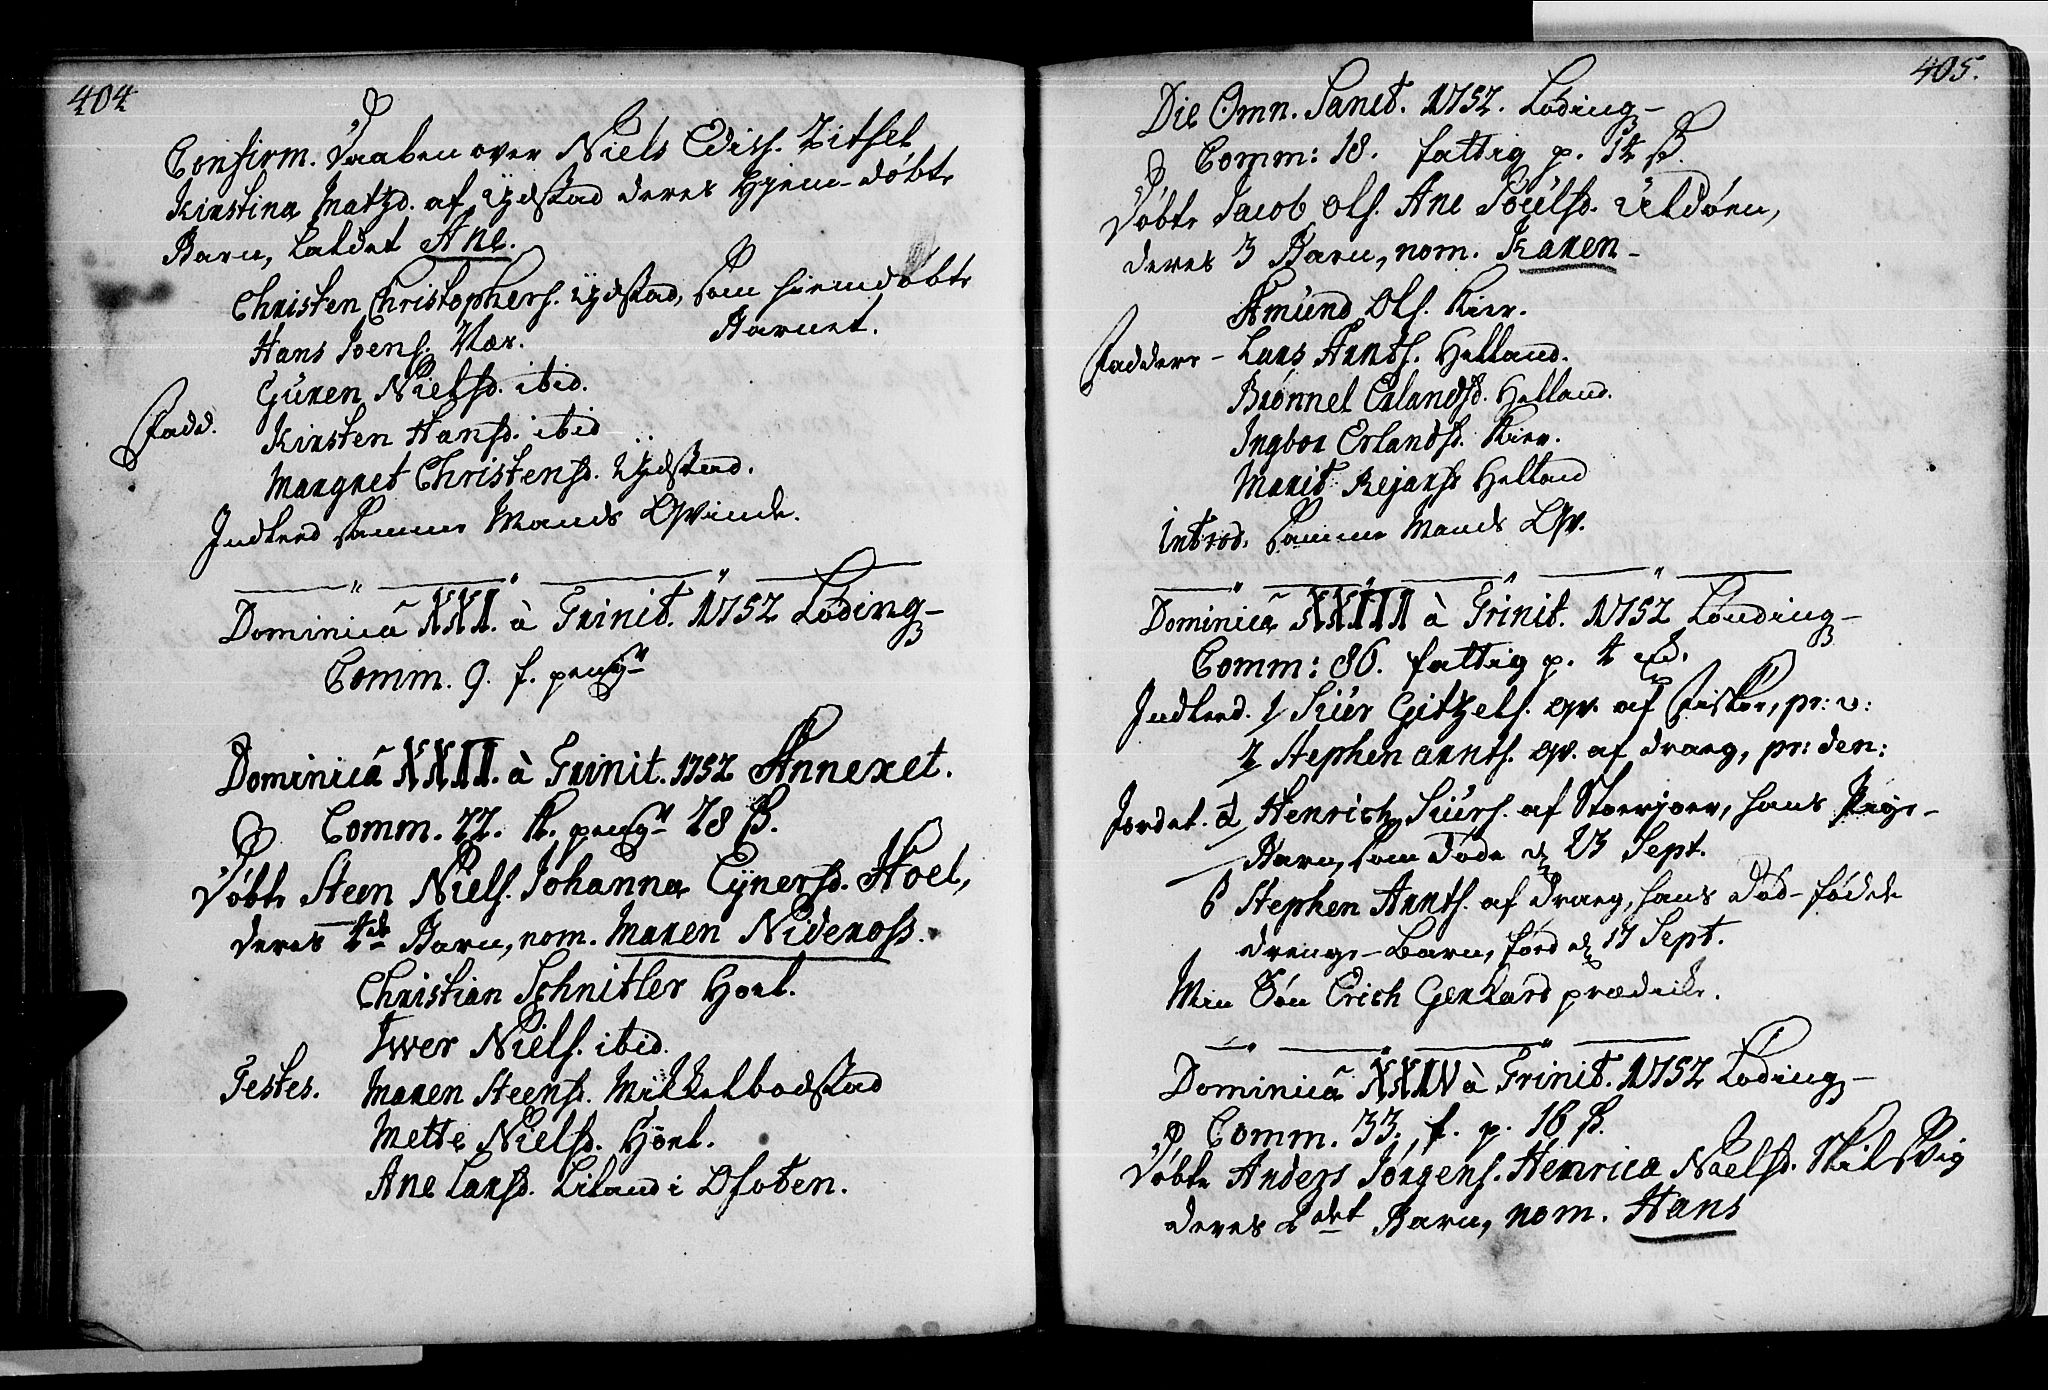 404
Confirm. Daaben over Niels Edis. Zithel
Kirstina Matzd. af Ydstad deres Hjem-døbte
Barn, kaldet Ane.
Christen Christophers. Ydstad, som hiemdøbte
Barnet.
Hans Joens. Vær.
Guren Nielsd. ibid.
Fadd.
Kirsten Hansd. ibid
Margret Christensd. Ydstad.
Indleed samme Mands Qvinde.
Dominica XXI. à Trinit. 1752 Løding-
Comm. 9. f. peng
Dominica XXII. à Trinit. 1752 Annexet.
Comm. 22. f. peng 28 ß.
Døbt Steen Niels. Johanna Eynersd. Hoel,
deres 4de Barn, nom. Maren Nideross.
Christian Schnitler Hoel.
Iwer Niels. ibid.
Testes.
Maren Steensd. Mikkelbodstad
Mette Nielsd. Hoel.
Ane Larsd. Liland i Ofoten.
405.
Die Omn. Sanct. 1752. Løding-
Comm: 18. fattig p. 14 ß.
Døbt Jacob Ols. Ane Poulsd. Uldøen,
deres 3 Barn, nom. Karen-
Amund Ols. Kier.
Faddere-
Lars Arnts. Helland.
Brønnel Erlandsd. Helland.
Ingbor Erlandsd. Kier.
Marit Rejarsd Helland
Introd. samme Mands Qv.
Dominica XXIII à Trinit. 1752 Lønding-
Comm: 86. fattig p. 4
Indleed. 1/ Siur Gitzels. qv. af Fiskøe, pr: v:
2/ Stephen Arnts. qv. af Draeg, pr: den:
Jordet. a/ Henrich Siurs. af Stoerjoer, hans Pige-
Barn, som døde d 23 Sept.
b Stephen Arnts. af Draeg, hans Død-fødde
Drenge-Barn, førd d 17 Sept.
Min Søn Erich Gerhard prædike.
Dominica XXIV à Trinit. 1752 Løding-
Comm. 33. f. p. 16 ß.
Døbt Anders Jørgens. Henrica Nielsd. Skilsvig
deres 2det Barn, nom. Hans